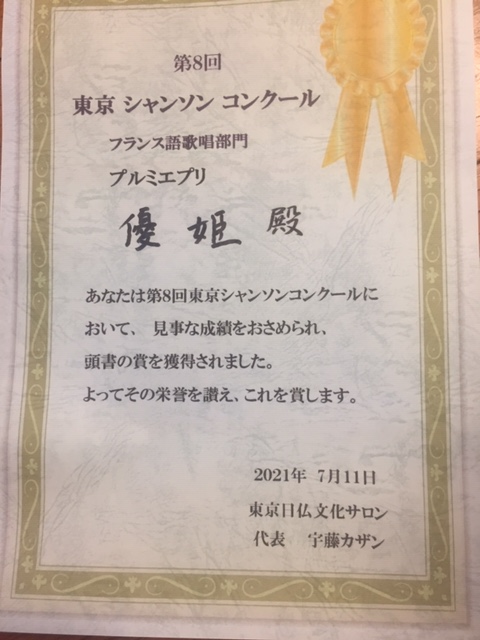 第8回
東京 シャンソン コンクール
フランス語歌唱部門
プルミエプリ
優 姫 殿
あなたは第8回東京シャンソンコンクールに
おいて、 見事な成績をおさめられ、
頭書の賞を獲得されました。
よってその栄誉を讃え、これを賞します。
2021年 7月11日
東京日仏文化サロン
代表 宇藤カザン